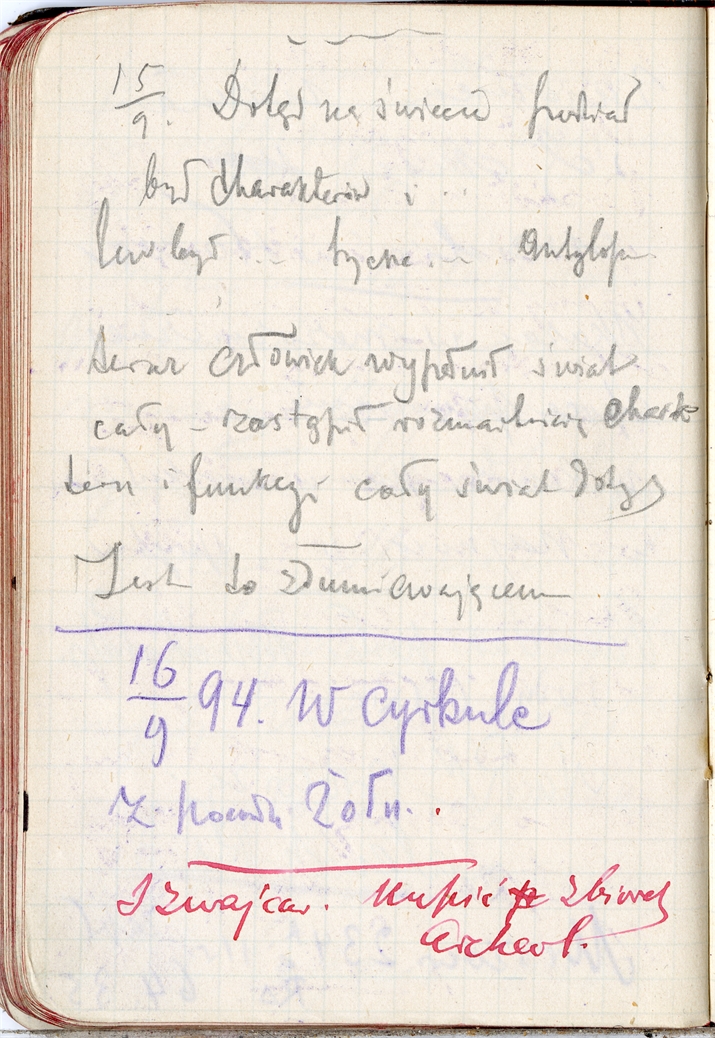 15/9. Dotąd na świecie podział
był charakterów i ..
Lew był ... ... Antylopa
teraz człowiek wypełnił świat
cały – zastąpił rozmaitością charak
teru i funkcyi cały świat
Jest to zdumiewającem
16/9 94. W Cyrkule
z Żołn.
Szwajcar. Kupić zbiorek
Archeol.